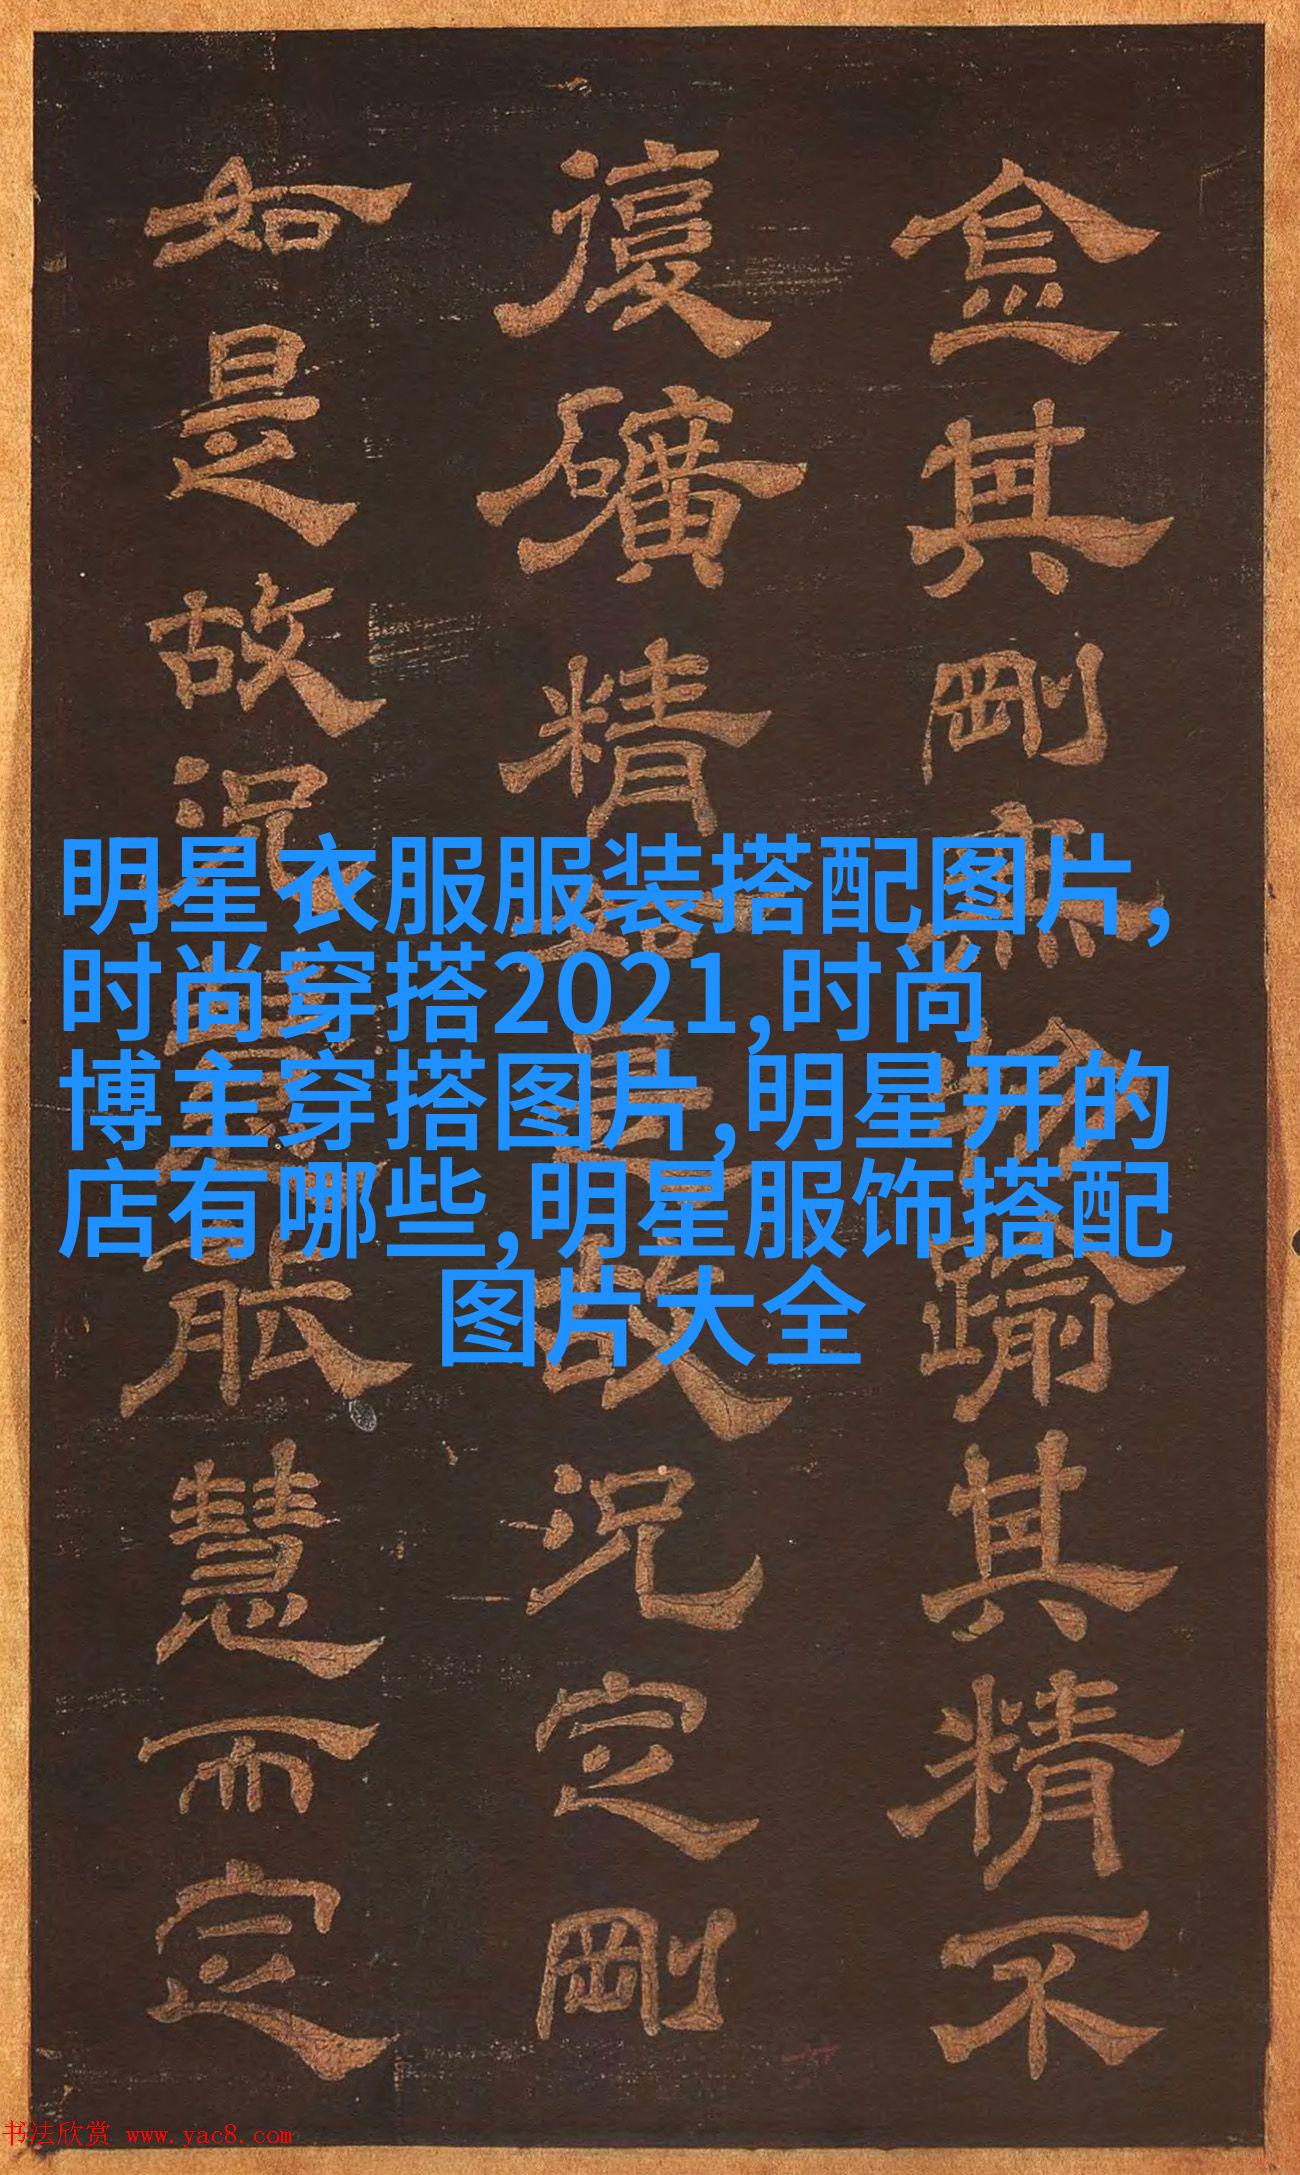 金其剛無踰其精不
復礦精故況定剛
如是故況能慧而定
明星衣服服装搭配图片,
时尚穿搭2021,时尚
博主穿搭图片,明星开的
店有哪些,明星服饰搭配
图片大全
书法欣赏 www.yac8.com